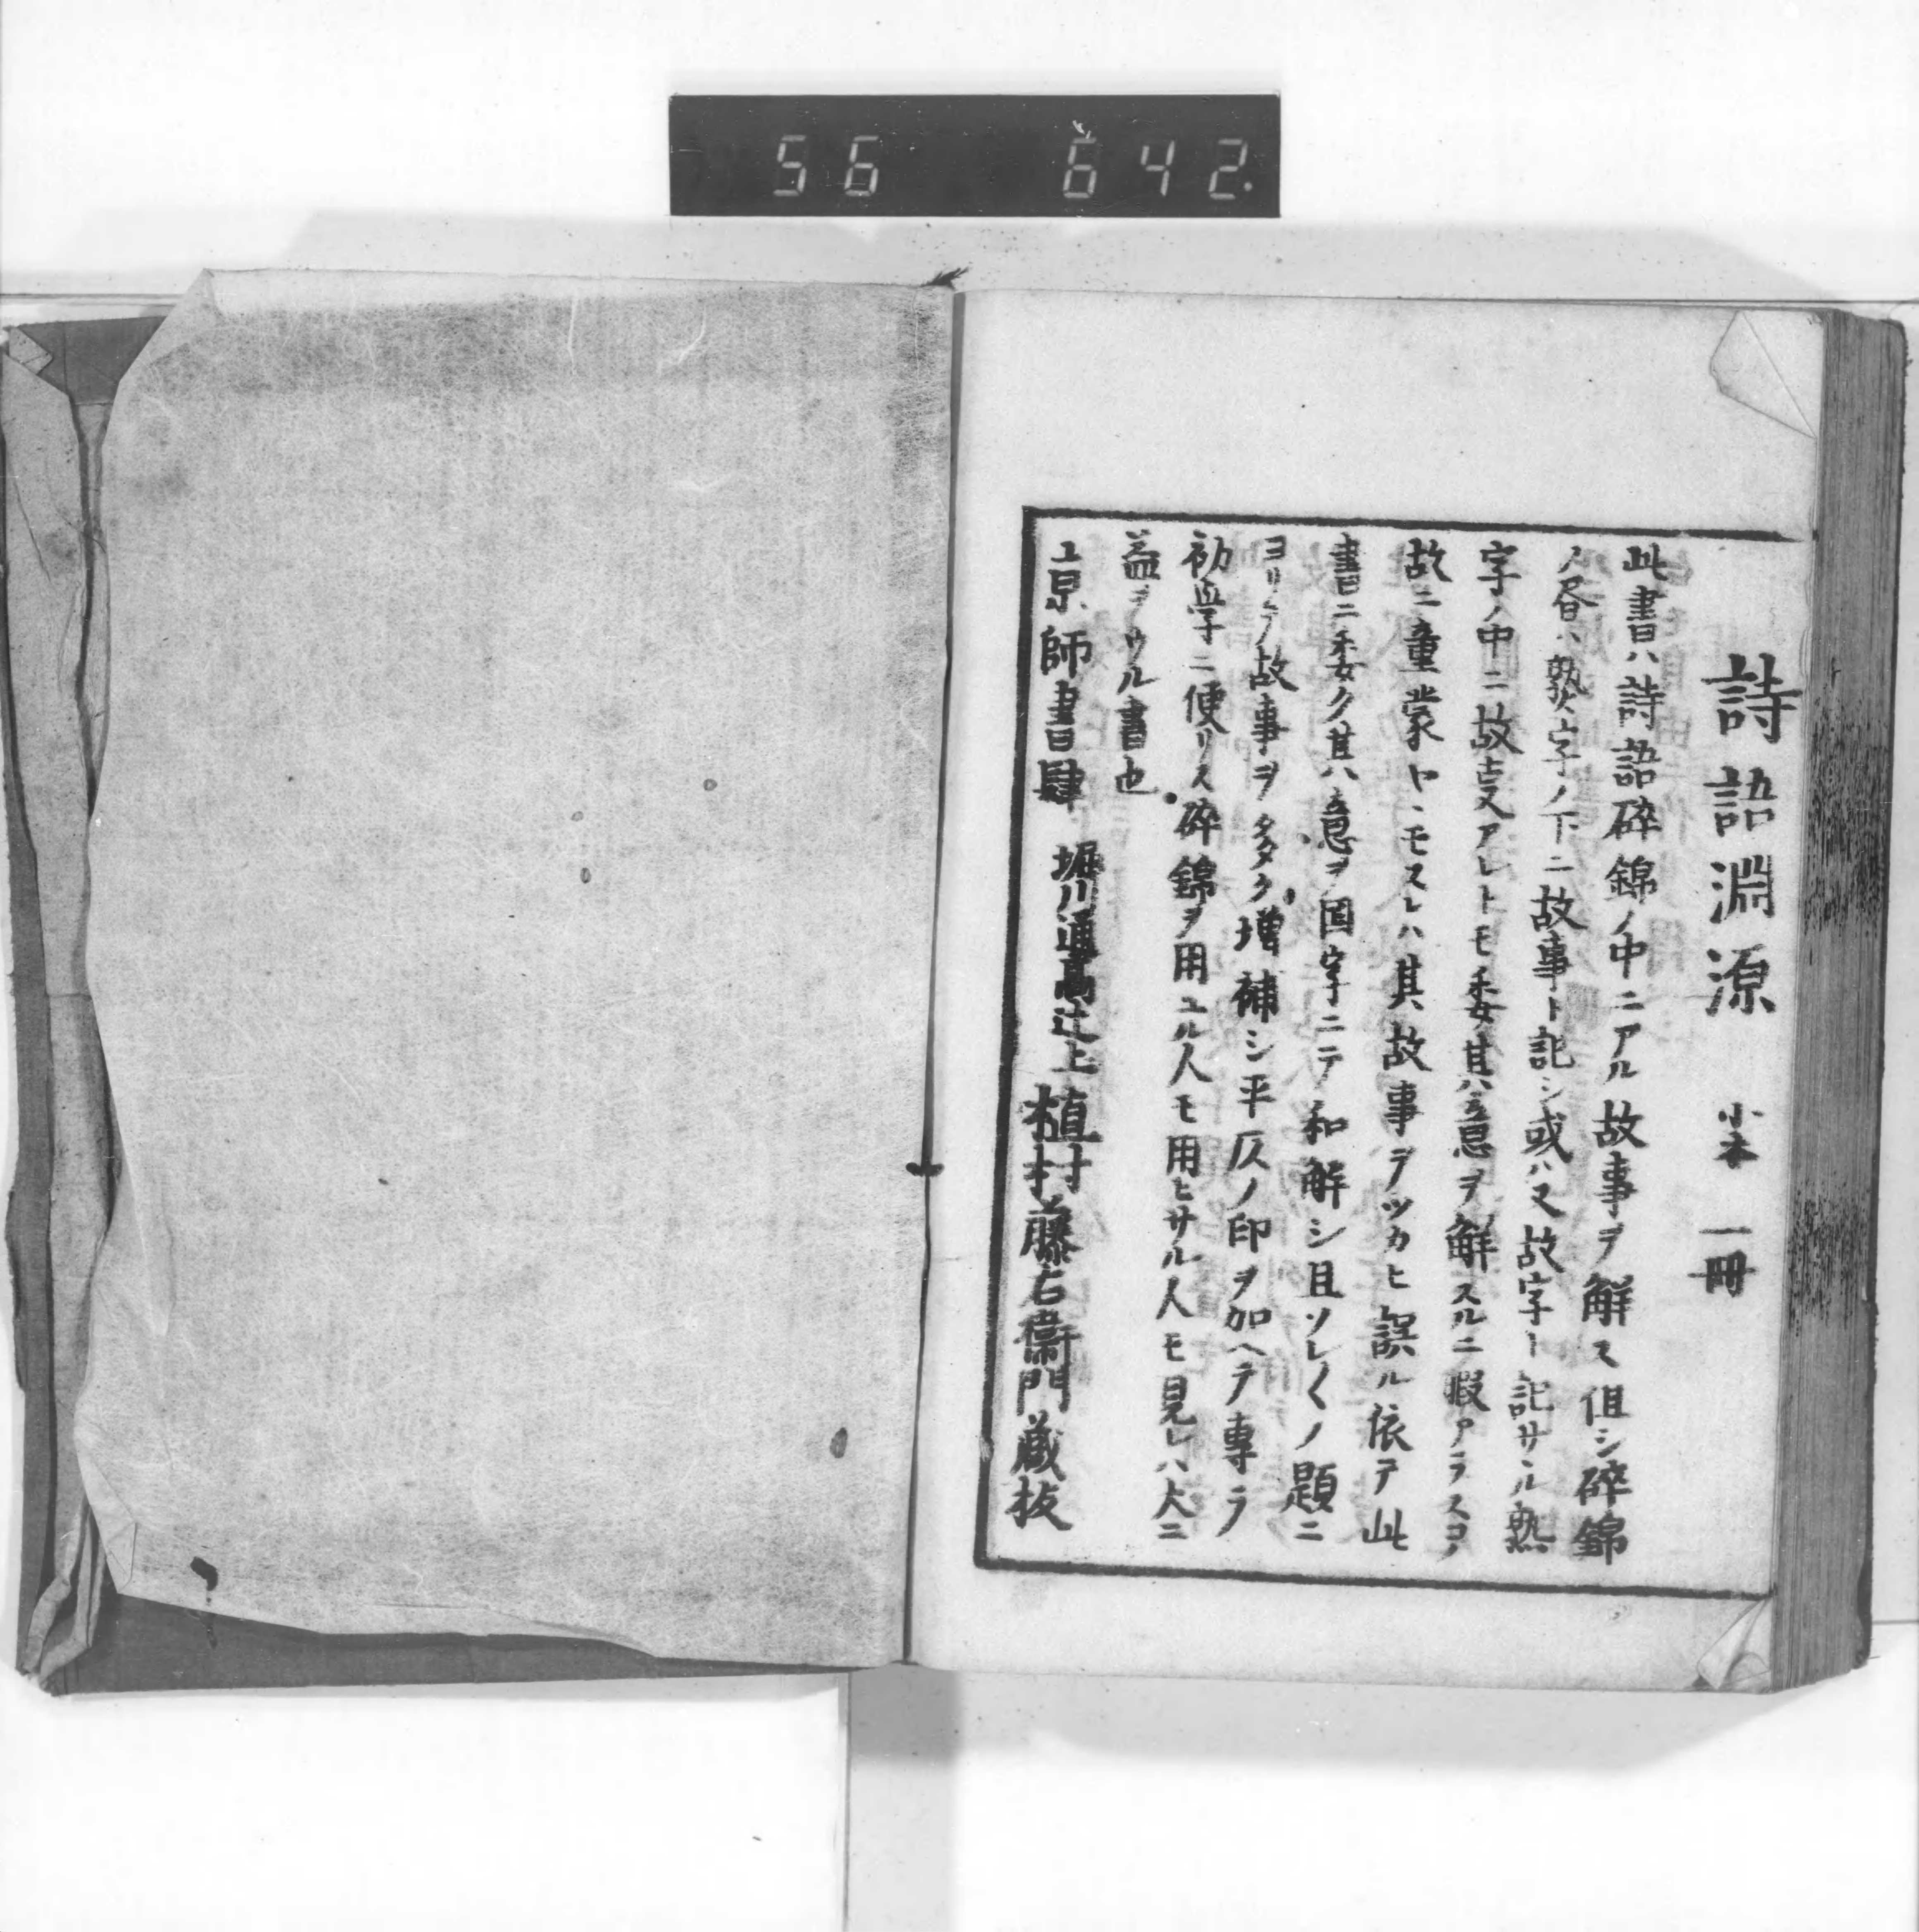 56 642.
詩語淵源 小本 一冊
此書ハ詩語碎錦ノ中ニアル故事ヲ解ス但シ碎錦
ノ昏ハ熟字ノ下ニ故事ト記シ或ハ又故字ト記サヽル熟
字ノ中ニ故支アレトモ委其意ヲ解スルニ暇アラスコノ
故ニ童蒙ヤヽモスレハ其故事ヲツカヒ誤ル依テ此
書ニ委ク其意ヲ国字ニテ和解シ且ソレ〱ノ題ニ
ヨリテノ故事ヲ多ク増補シ平仄ノ印ヲ加ヘテ專ラ
初学ニ便リス碎錦ヲ用ユル人モ用ヒサル人モ見レハ大ニ
益ヲウル書也
京師書肆 堀川通高辻上 植村藤右衛門蔵板